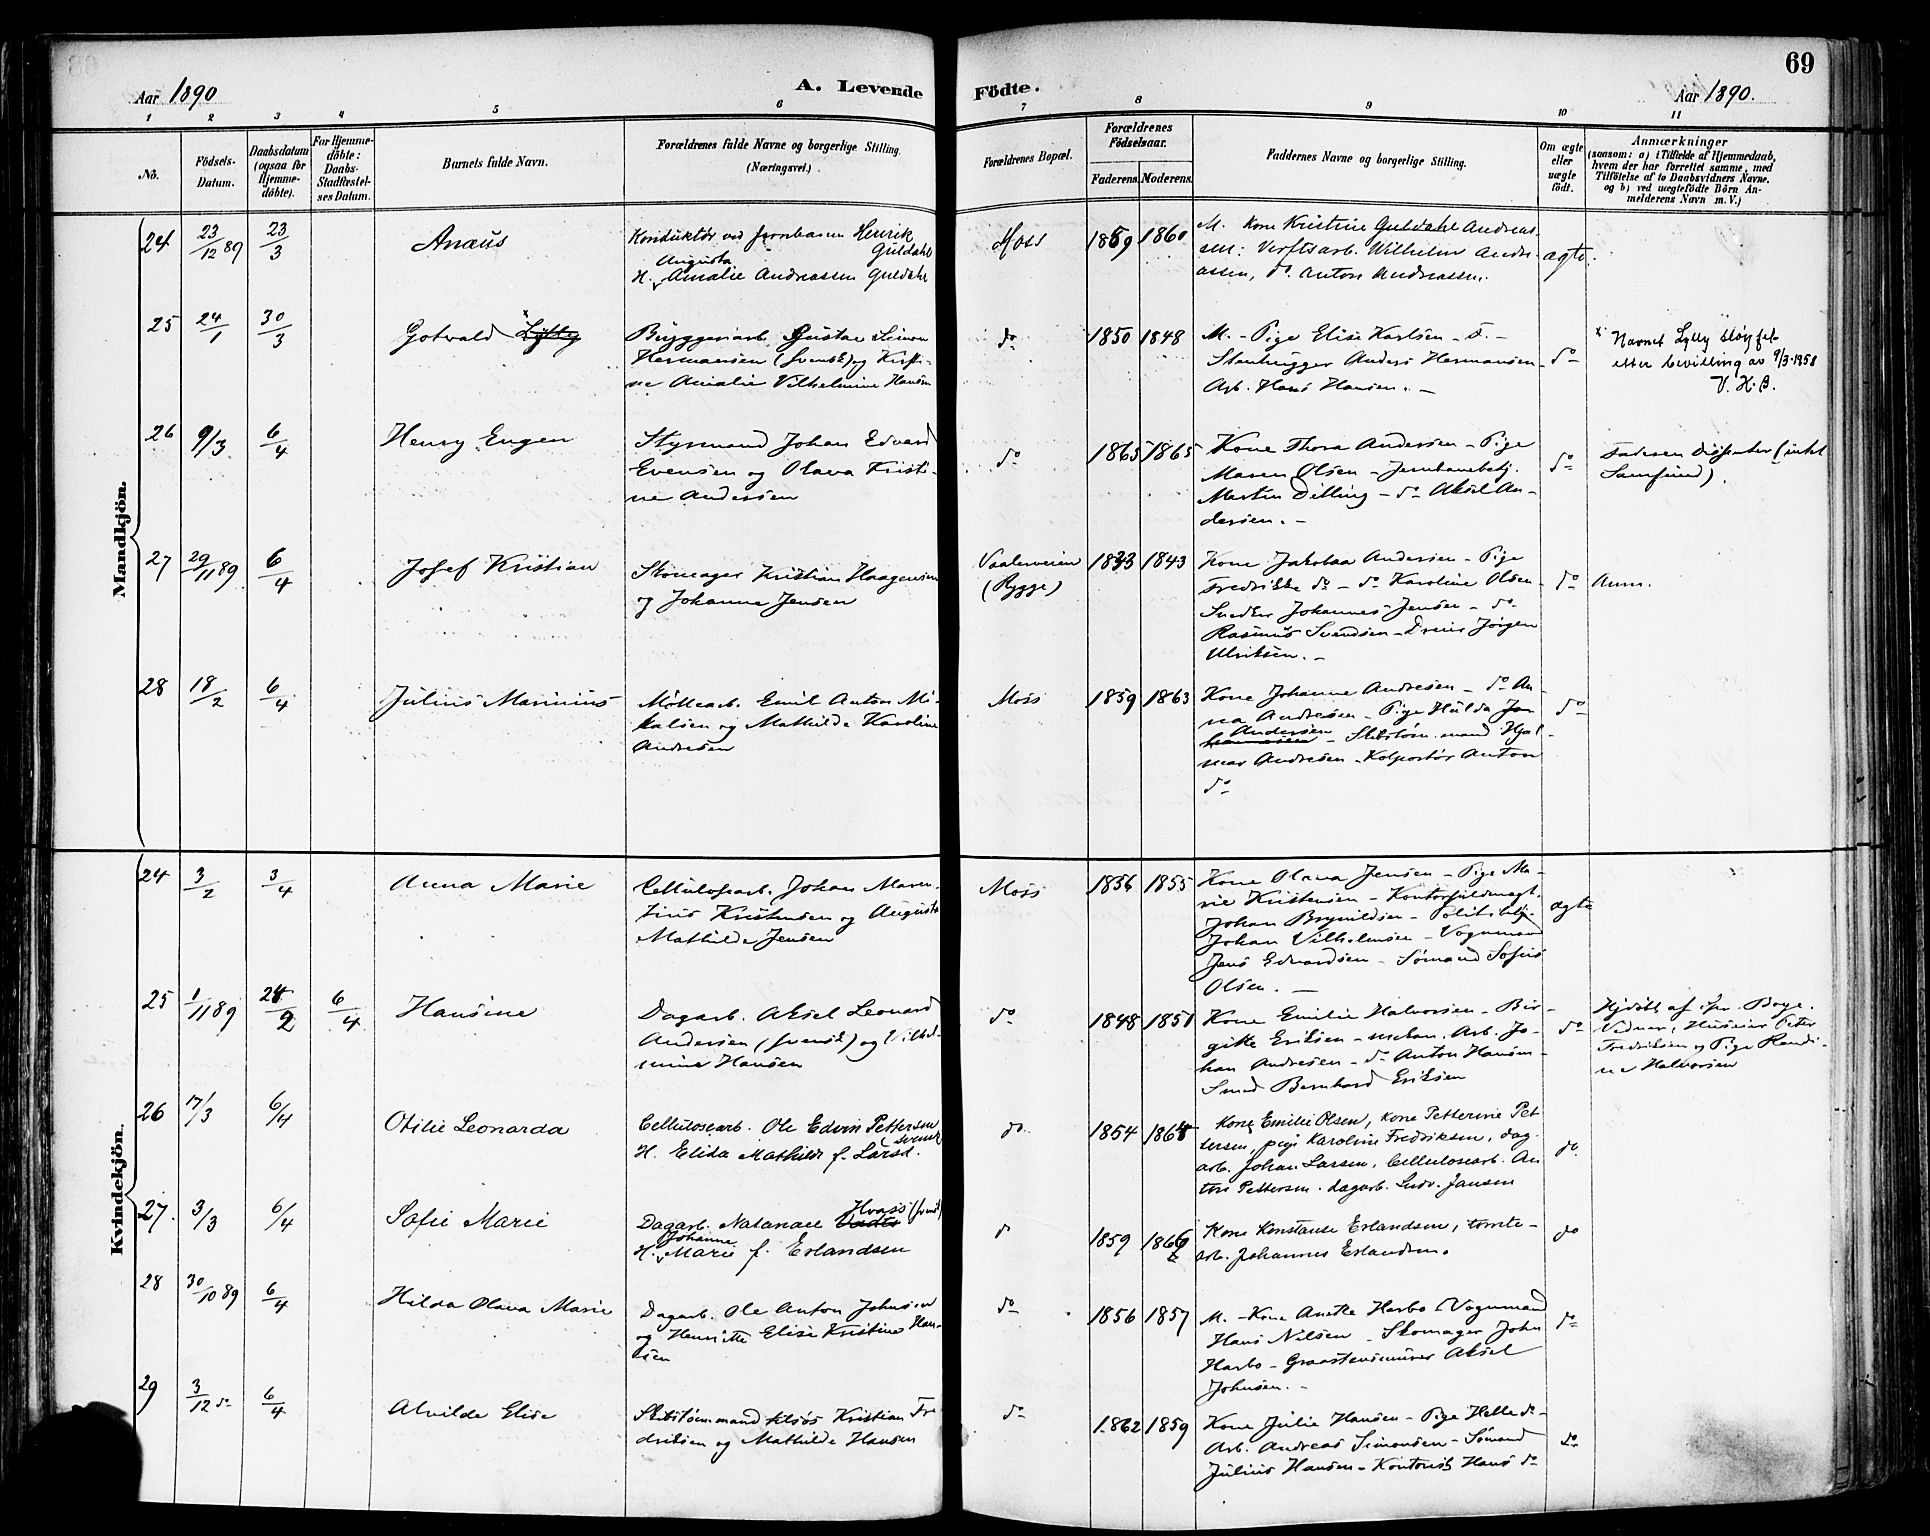 69
Aar 1890
A. Levende
Födte.
Aar 1890.
1 2 3 4 5 6 7 8 9 10 11
No.
Födsels-Datum.
Daabsdatum (ogsaa for Hjemme-döbte).
For Hjemme-döbte: Daabs-Stadfæstel-ses Datum.
Barnets fulde Navn.
Forældrenes fulde Navne og borgerlige Stilling.
(Næringsvei.)
Forældrenes Bopæl.
Forældrenes Födselsaar.
Faderens. Moderens.
Faddernes Navne og borgerlige Stilling.
Om ægte eller uægte födt.
Anmærkninger
(saasom: a) i Tilfælde af Hjemmedaab,
hvem der har forrettet samme, med
Tilföielse af to Daabsvidners Navne,
og b) ved uægtefödte Börn An-
melderens Navn m. V.)
Mandkjön.
24 23/12 89 23/3
Anæus
Konduktør ved Jernbanen Henrik
Guldahl
Augusta
H. Amalie Andreassen Guldahl
Moss
1859 1860
M. Kone Kristine Guldahl Andreas
sen: Verftsarb. Wilhelm Andre
assen, do. Anton Andreassen.
ægte.
25 24/1 30/3
Gotvald Lylly
Byggeriarb. Gustav Simon
Hermansen (svensk) og Kirsti-
ne Amalie Vilhelmine Hansen
do
1850 1848
M. - Pige Elise Karlsen - F. -
Stenhugger Anders Hermansen -
Arb. Hans Hansen. -
do
x Navnet Lylly sløyfet
etter bevilling av 9/3-1958
V. H. B.
26 9/3 6/4
Henry Eugen
Styrmand Johan Edvard
Evensen og Olava Kristi-
ne Andersen
do
1865 1865
Kone Thora Andersen - Pige
Maren Olsen - Jernbanebetj.
Martin Dilling - do Aksel An-
dersen. -
do
Faderen Dissenter (intet
Samfund).
27 29/11 89 6/4
Josef Kristian
Skomager Kristian Haagensen
og Johanne Jensen
Vaalerveien
(Rygge)
1833 1843
Kone Jakobaa Andersen - Pige
Fredrikke do - do Karoline Olsen -
Snedker Johannes Jensen - do
Rasmus Svendsen - Dreier Jørgen
Ulriksen. -
do
Anm.
28 18/2 6/4
Julius Marinius
Møllearb. Emil Anton Mi-
kalsen og Mathilde Karoline
Andresen
Moss
1859 1863
Kone Johanne Andresen - do An-
na Andresen - Pige Hulda Jo-
hannesen Andersen - Skibstøm.mand Hjal-
mar Andresen - Kolportør Anton
do
do
Kvindekjön.
24 3/2 3/4
Anna Marie
Cellulosearb. Johan Maren-
tius Kristensen og Augusta
Mathilde Jensen
Moss
1856 1855
Kone Olava Jensen - Pige Ma-
rie Kristensen - Kontorfuldmægt.
Johan Brynildsen - Politibetj.
Johan Vilhelmsen - Vognmand
Jens Edvardsen - Sømand Sofus
Olsen. -
ægte
25 1/11 89 24/2 6/4
Hansine
Dagarb. Aksel Leonard
Andersen (svensk) og Vilhel-
mine Hansen
do
1848 1851
Kone Emilie Halvorsen - Bir-
gitte Eriksen - mekan. Arb. Jo-
han Andresen - do Anton Hansen -
Smed Bernhard Eriksen
do
Hjdøbt af Spr. Boye.
Vidner: Huseier Peter
Fredriksen og Pige Randi-
ne Halvorsen
26 17/3 6/4
Otilie Leonarda
Cellulosearb. Ole Edvin Pettersen
svensk
H. Elida Mathilde f. Larsd.
do
1854 1864
Kone Emilie Olsen, Kone Petterine Pet
tersen, pige Karoline Fredriksen, dag-
arb. Johan Larsen, Cellulosearb. An
ton Pettersen. dagarb. Ludv. Jansen
do.
27. 3/3 6/4
Sofie Marie
Dagarb. Natanael Hvass (svensk)
Johanne
H. Marie f. Erlandsen
do
1859 1866
Kone Konstanse Erlandsen, tomte-
arb. Johannes Erlandsen.
do
28 30/10 89 6/4
Hilda Olava Marie
Dagarb. Ole Anton Johnsen
og Henriette Elise Kristine Han-
sen
do
1856 1857
M. - Kone Anette Harbo - Vognmand
Hans Nilsen - Skomager John
Harbo - Graastensmurer Aksel
Johnsen. -
do
29 3/12 do 6/4
Alvilde Elise
Skibstømmermand Kristian Fre
driksen og Mathilde Hansen
do
1862 1859
Kone Julie Hansen - Pige Helle do -
Arb. Andreas Simonsen - Sømand
Julius Hansen - Kontorist Hans do
do